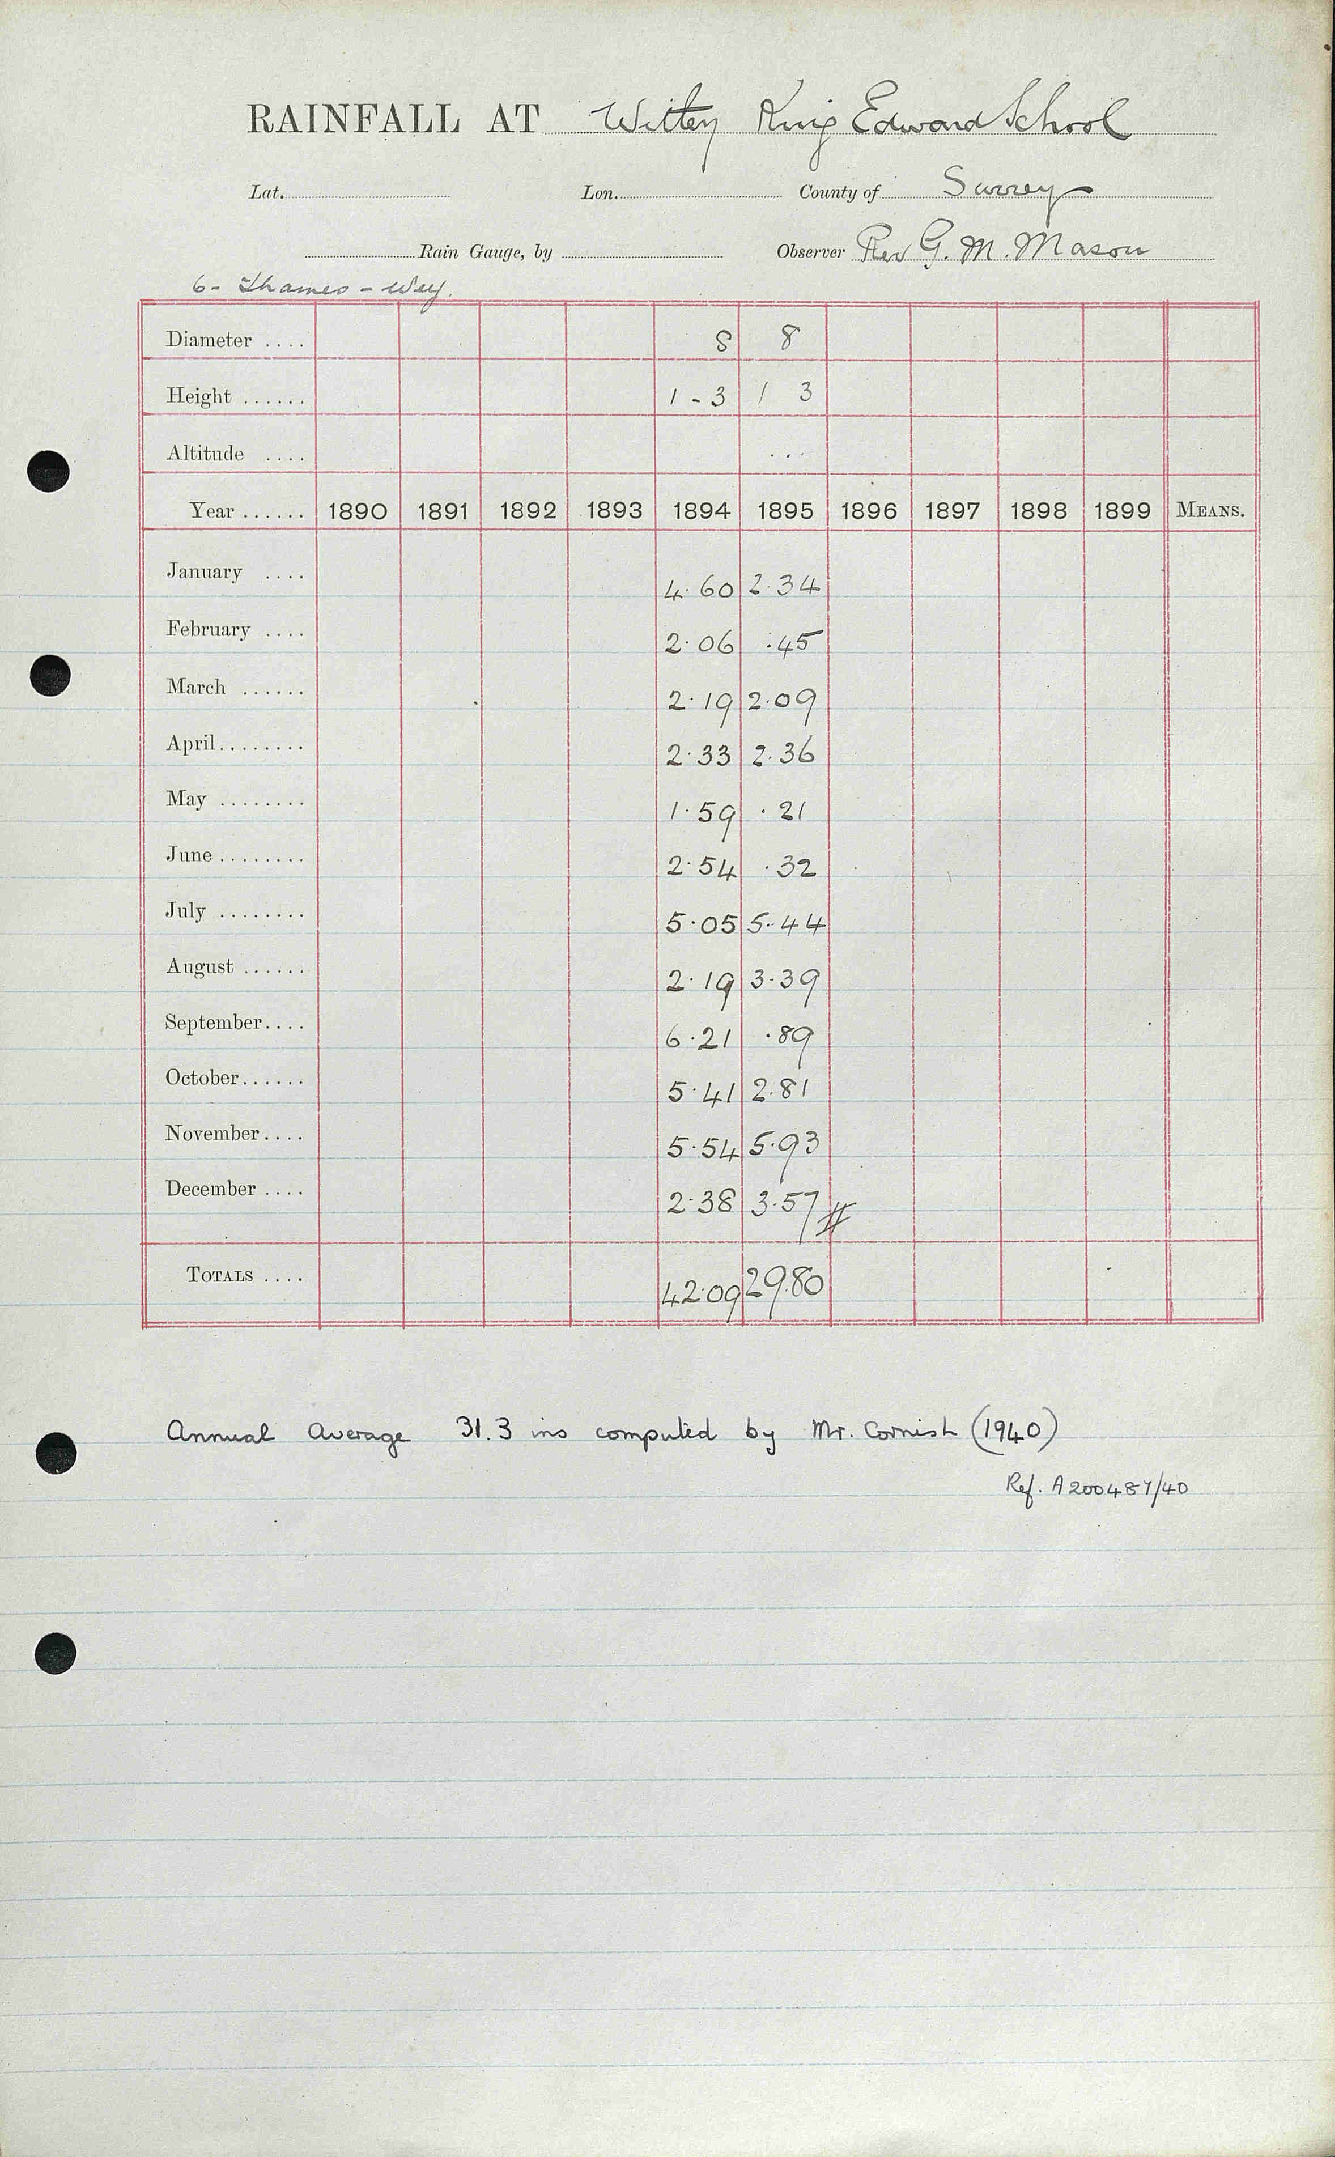 RAINFALL AT Witley King Edward School
Lat. Lon. County of Surrey
Rain Gauge, by Observer Rev G. M. Mason
6 - Thames - Wey.
Diameter .... 8 8
Height ...... 1-3 1 3
Altitude .... ...
Year ...... 1890 1891 1892 1893 1894 1895 1896 1897 1898 1899 MEANS.
January .... 4.60 2.34
February .... 2.06 .45
March ...... 2.19 2.09
April........ 2.33 2.36
May ........ 1.59 .21
June ........ 2.54 .32
July ........ 5.05 5.44
August ...... 2.19 3.39
September.... 6.21 .89
October...... 5.41 2.81
November.... 5.54 5.93
December .... 2.38 3.57 #
TOTALS .... 42.09 29.80
Annual average 31.3 ins computed by Mr. Cornish (1940)
Ref. A200487/40